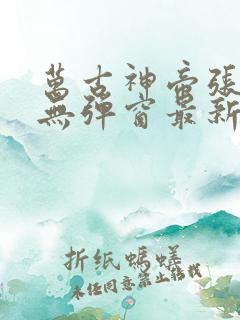 萬古神帝張
無彈窗最新
折纸螞蟻
未经同意禁止转载